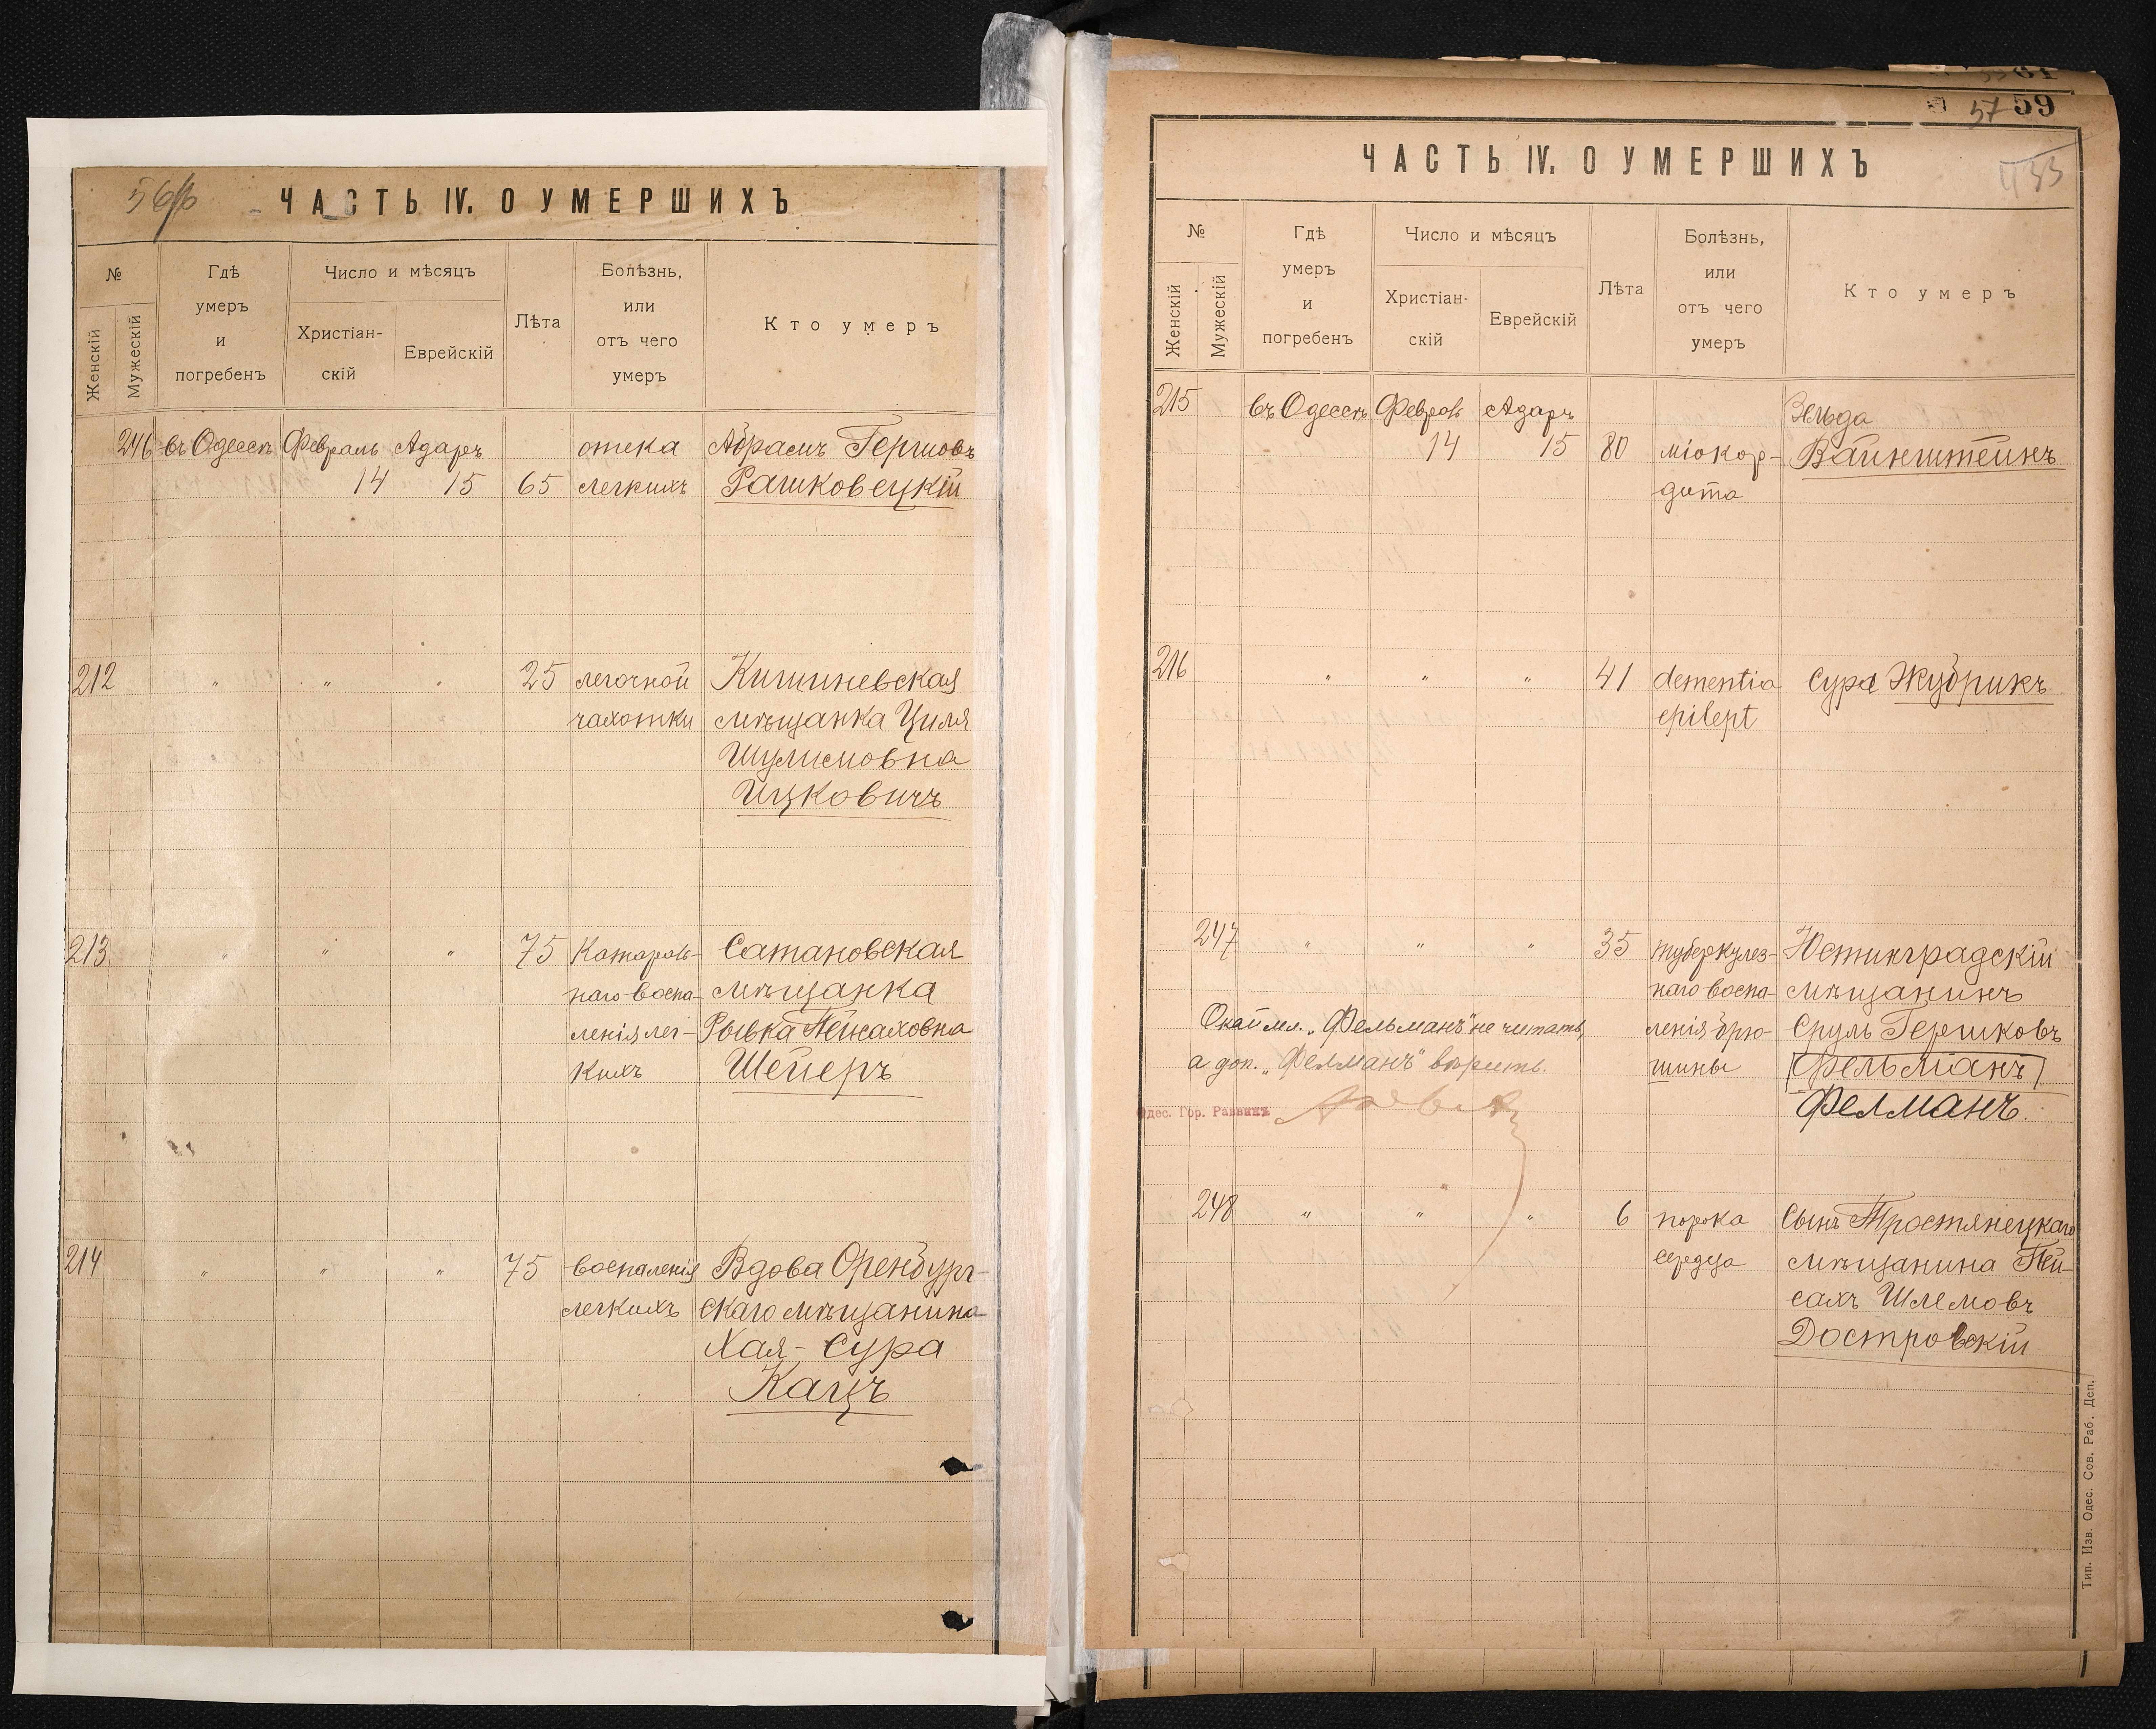 56об
ЧАСТЬ IV. О УМЕРШИХЪ
№
Женскій
Мужескій
Гдѣ
умеръ
и
погребенъ
Число и мѣсяцъ
Христіан-
скій
Еврейскій
Лѣта
Болѣзнь,
или
отъ чего
умеръ
Кто умеръ
246 въ Одессѣ Февраль Адаръ отека Абрамъ Гершовъ
14 15 65 легкихъ Рашковецкій
212 " " " 25 легочной Кишиневская
чахотки мѣщанка Циля
Шулимовна
Ицковичъ
213 " " " 75 Катарал- Сатановская
наго воспа- мѣщанка
ленія лег- Рывка Пейсаховна
кихъ Шейеръ
214 " " " 75 воспаленія Вдова Оренбург-
легкихъ скаго мѣщанина
Хая-Сура
Кацъ
61
57 59
ЧАСТЬ IV. О УМЕРШИХЪ
№
Женскій
Мужескій
Гдѣ
умеръ
и
погребенъ
Число и мѣсяцъ
Христіан-
скій
Еврейскій
Лѣта
Болѣзнь,
или
отъ чего
умеръ
Кто умеръ
215 въ Одессѣ Феврал Адаръ Зельда
14 15 80 міокар- Вайнштейнъ
дита
216 " " " 41 dementia Сура Жубрикъ
epilept
247 " " " 35 туберкулез- Юстинградскій
наго воспа- мѣщанинъ
Окаймл. „Фельманъ" не читать, ленія брю- Сруль Гершковъ
а доп. „Фелманъ" вѣрить. шины Фельманъ
Одес. Гор. Раввинъ Фелманъ.
248 " " " 6 порока Сынъ Тростянецкаго
сердца мѣщанина Пей-
сахъ Шлемовъ
Достровскій
Тип. Изв. Одес. Сов. Раб. Деп.